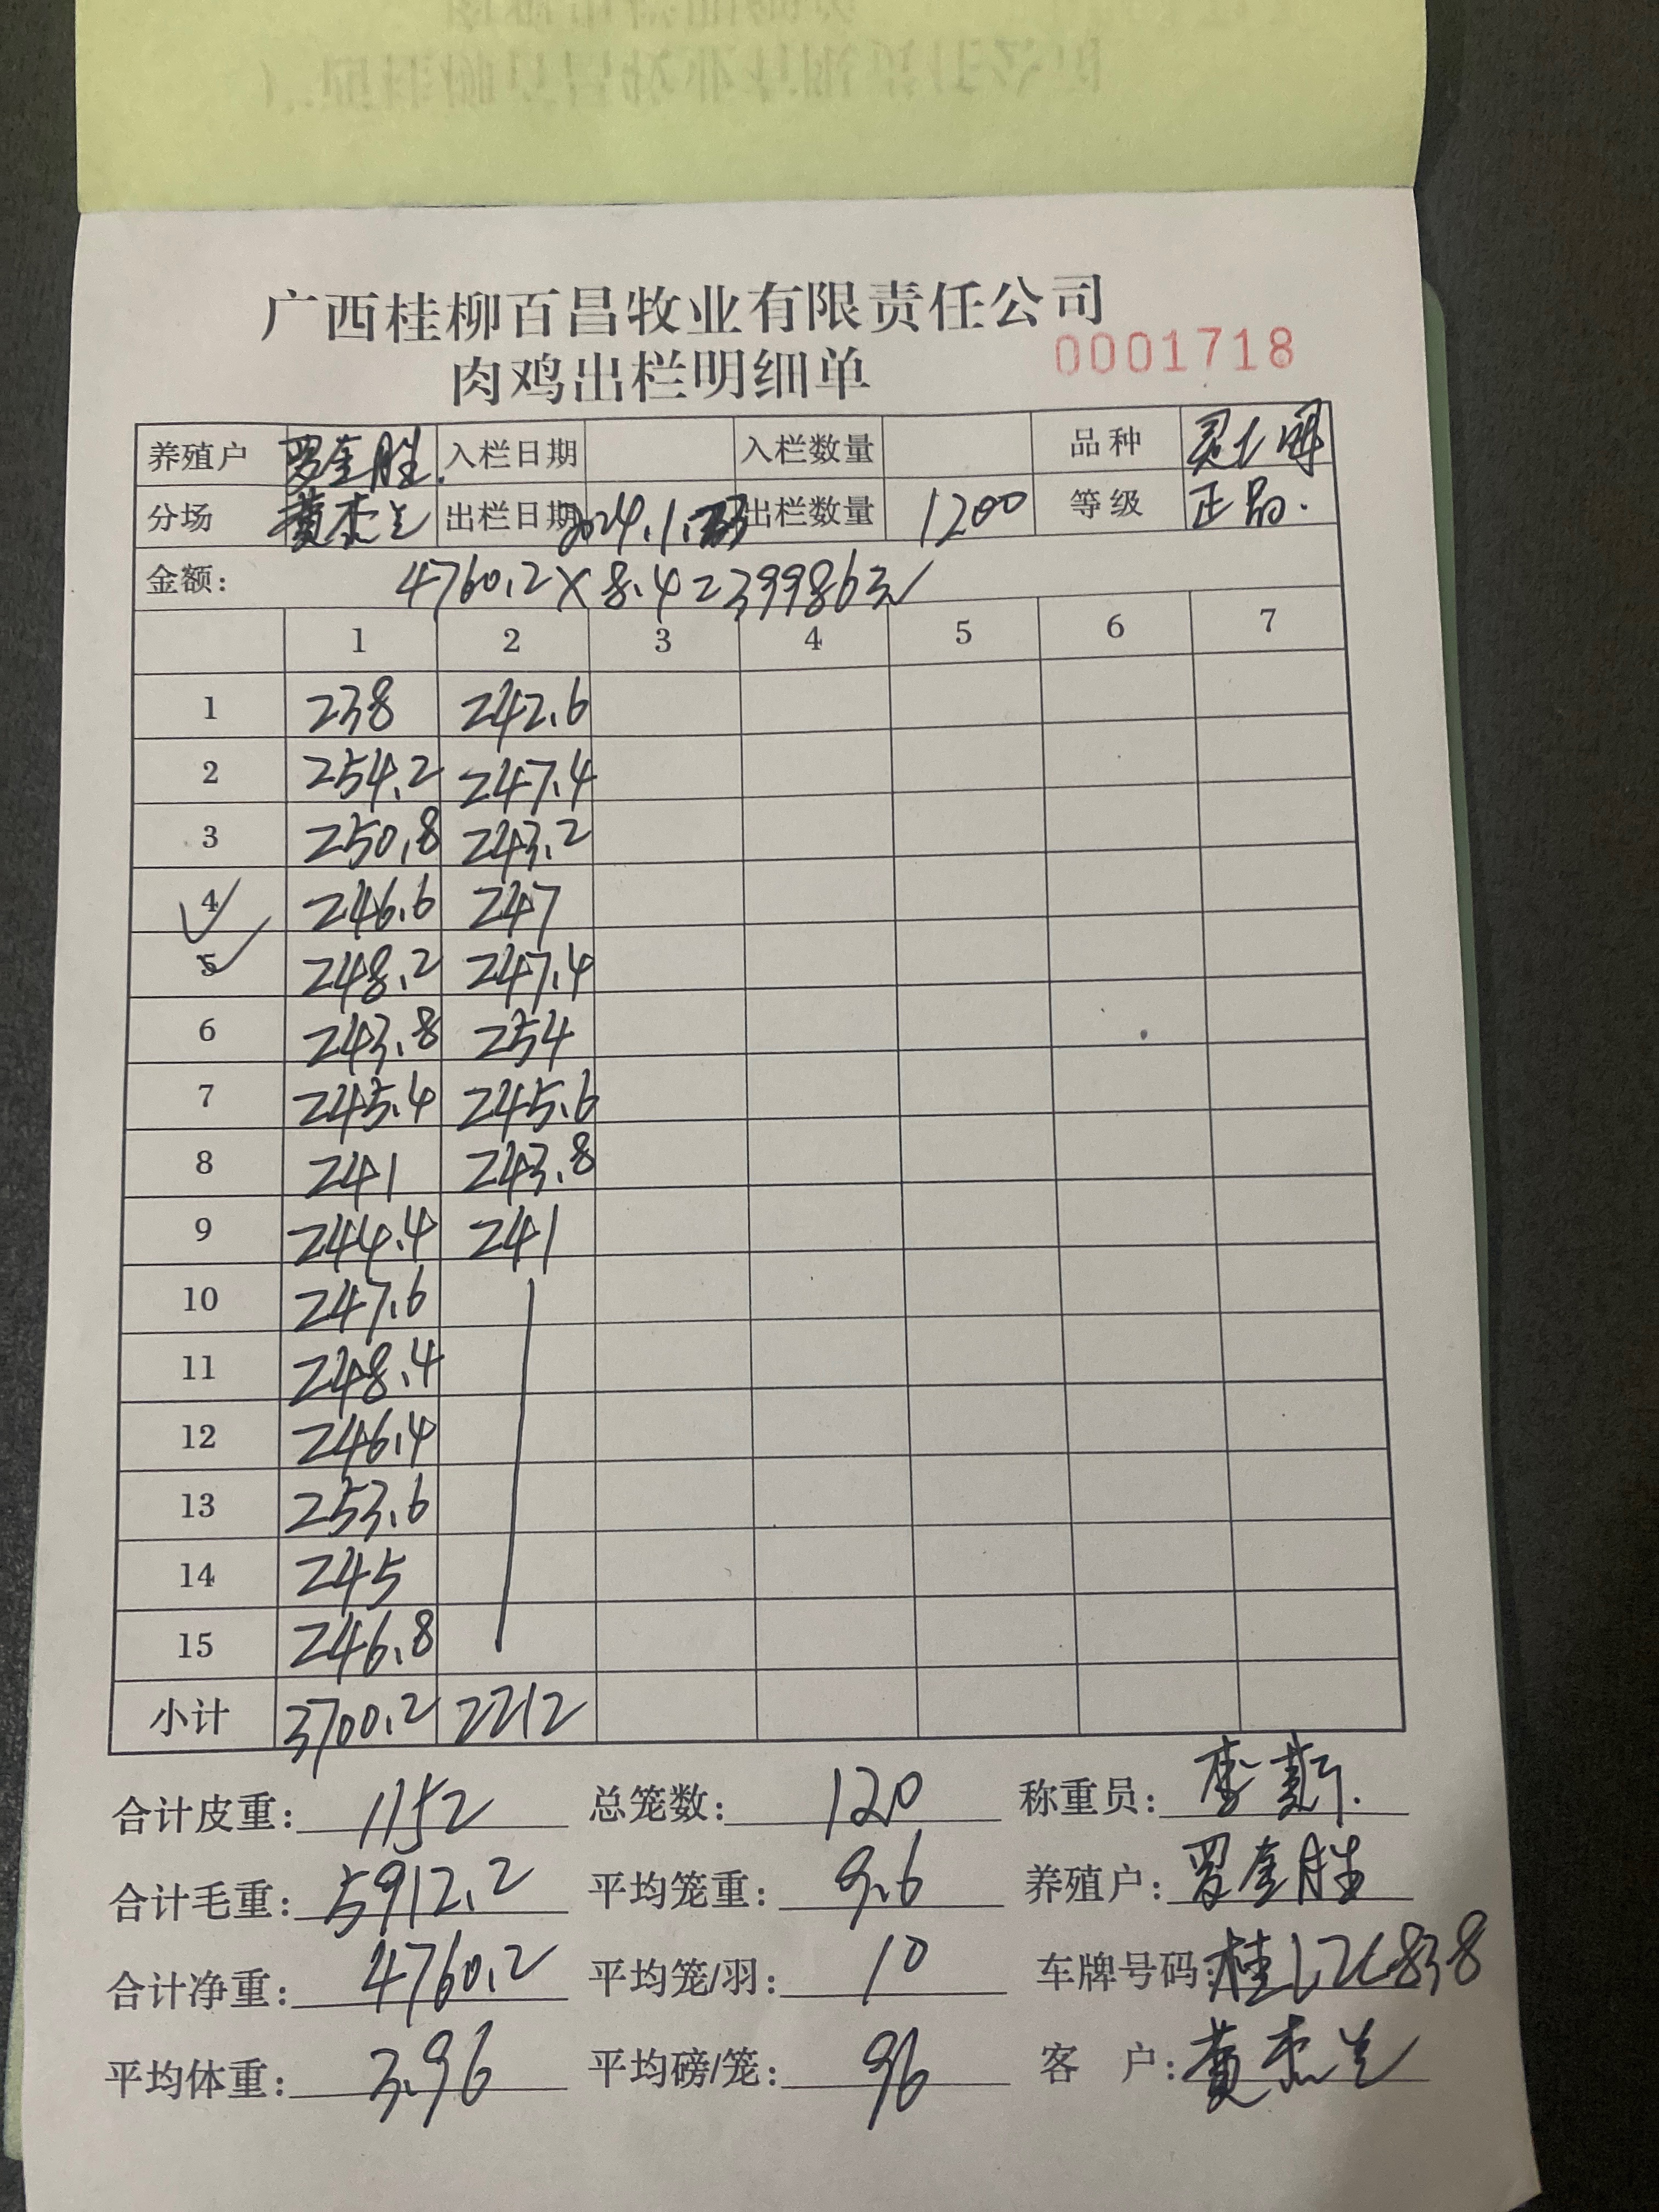 广西桂柳百昌牧业有限责任公司
肉鸡出栏明细单 0001718
养殖户 罗奎胜 入栏日期 入栏数量 品种
分场 黄杰兰 出栏日期 2024.1. 出栏数量 1200 等级 正品.
金额: 4760.2×8.4=39986元
1 2 3 4 5 6 7
1 238 242.6
2 254.2 247.4
3 250.8 243.2
4 246.6 247
5 248.2 247.4
6 243.8 254
7 245.4 245.6
8 241 243.8
9 244.4 241
10 247.6
11 248.4
12 246.4
13 253.6
14 245
15 246.8
小计 3700.2 2212
合计皮重: 1152 总笼数: 120 称重员: 李斯.
合计毛重: 5912.2 平均笼重: 9.6 养殖户: 罗奎胜
合计净重: 4760.2 平均笼/羽: 10 车牌号码:
平均体重: 3.96 平均磅/笼: 96 客 户: 黄杰兰